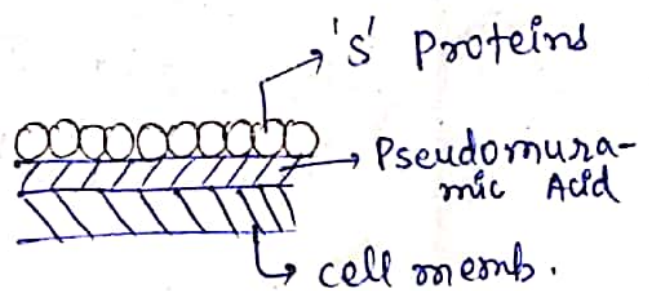 'S' Proteins
Pseudomura-
mic Acid
cell memb.